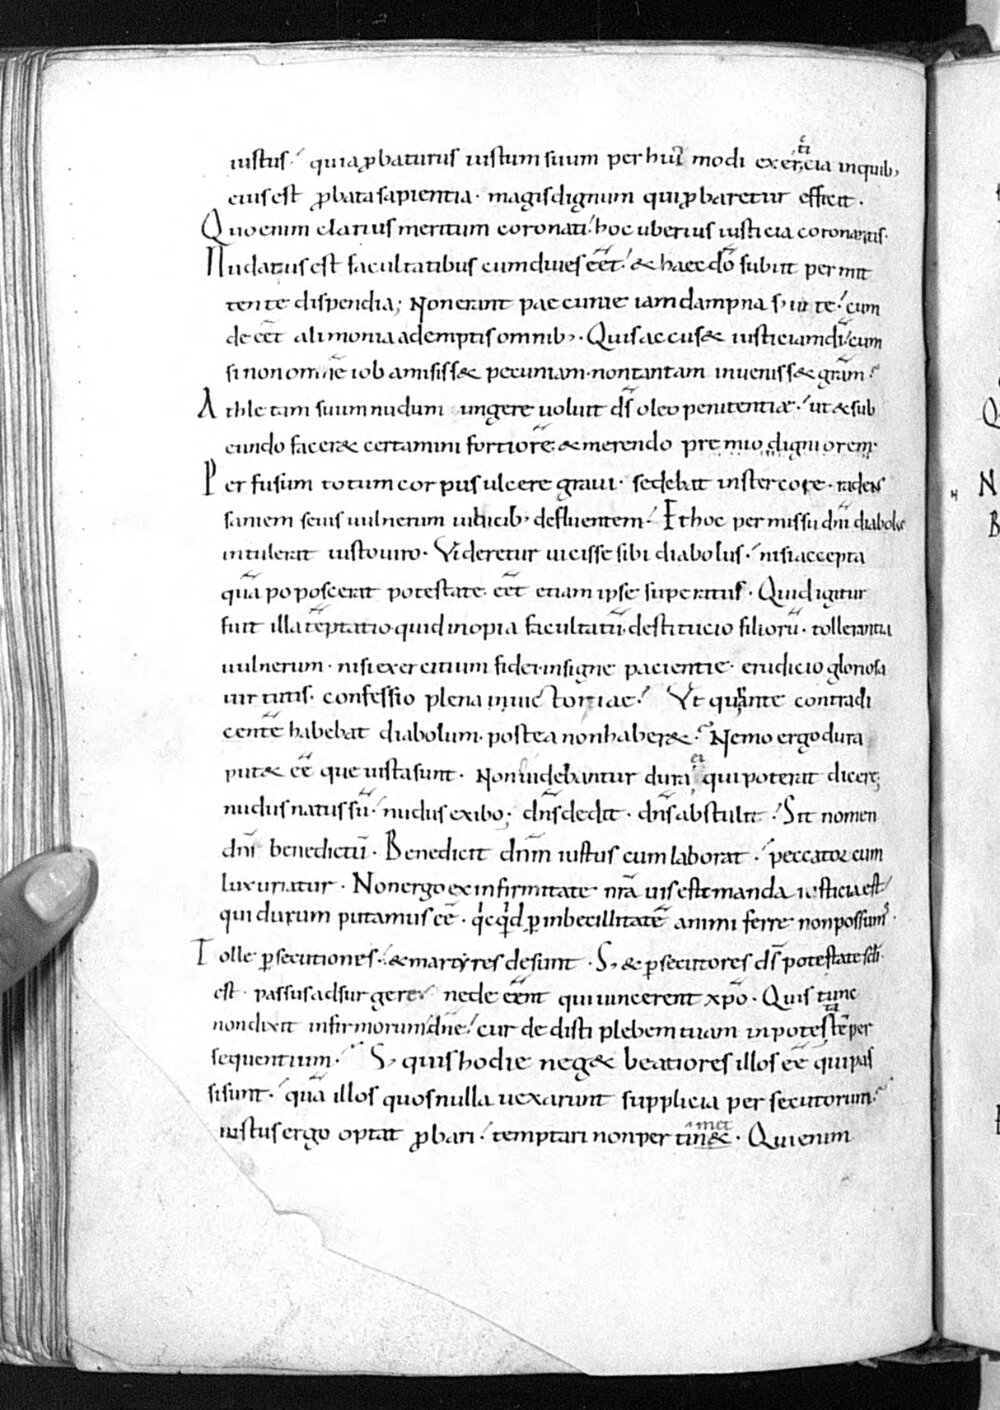 iustus· quia ꝓbaturus iustum suum per huiꝰ modi exercia inquib;
eius est ꝓbata sapientia· magis dignum qui ꝓbaretur effecit·
Quo enim clarius meritum coronati hoc uberius iusticia coronantis·
Nudatus est facultatibus cum diues eet̄· & haec do̅ subiit permit
tente dispendia; Non erant paecuniae iam dampna s; uite· cum
de eet̄ alimonia ademptis omnib;· Quis accus& iusticiam di̅ cum
si non om̅ne iob amisiss& pecuniam· non tantam inueniss& gr̅am·
Athletam suum nudum ungere uoluit ds̅ oleo penitentiae· ut & sub
eundo facer& certamini fortiore̅· & merendo premio digniorem·
Perfusum totum corpus ulcere graui· sedebat in stercore· radens
saniem seuis uulnerum uibicib; defluentem· Et hoc permissu dn̅i diabolus
intulerat iusto uiro· Videretur uicisse sibi diabolus· nisi accepta
qua̅ poposcerat potestate· eet̄ etiam ipse superatus· Quid igitur
fuit illa te̅ptatio· quid inopia facultatu̅· destitucio filioru̅· tollerantia
uulnerum· nisi exercitium fidei· insigne pacientie· erudicio gloriosa
uirtutis· confessio plena in uictoriae· Vt quante contradi
cente̅ habebat diabolum· postea non haber&· Nemo ergo dura
put& ee̅ que iusta sunt· Non uidebantur dura ei qui poterat dicere;
nudus natus su̅· nudus exibo; dn̅s dedit· dn̅s abstulit· Sit nomen
dn̅i benedictu̅· Benedicit dn̅m iustus cum laborat· peccator cum
luxuriatur· Non ergo ex infirmitate nr̅a uis estimanda iusticia est
qui durum putamus ee̅· q̇cq̇d ꝑ inbecillitate̅ animi ferre non possumꝰ·
Tolle ꝑsecutiones· & martyres desunt· S; & ꝑsecutores ds̅ potestate sc̅li
est passus adsurgere· ne deee̅nt qui uincerent xp̅o· Quis tunc
non dixit infirmorum· dn̅e· cur dedisti plebem tuam in potestate̅ per
sequentium· S; quis hodie neg& beatiores illos ee̅ qui pas
si sunt· qua̅ illos quos nulla uexarunt supplicia persecutorum·
iustus ergo optat ꝓbari· temptari non pertim&· Qui enim